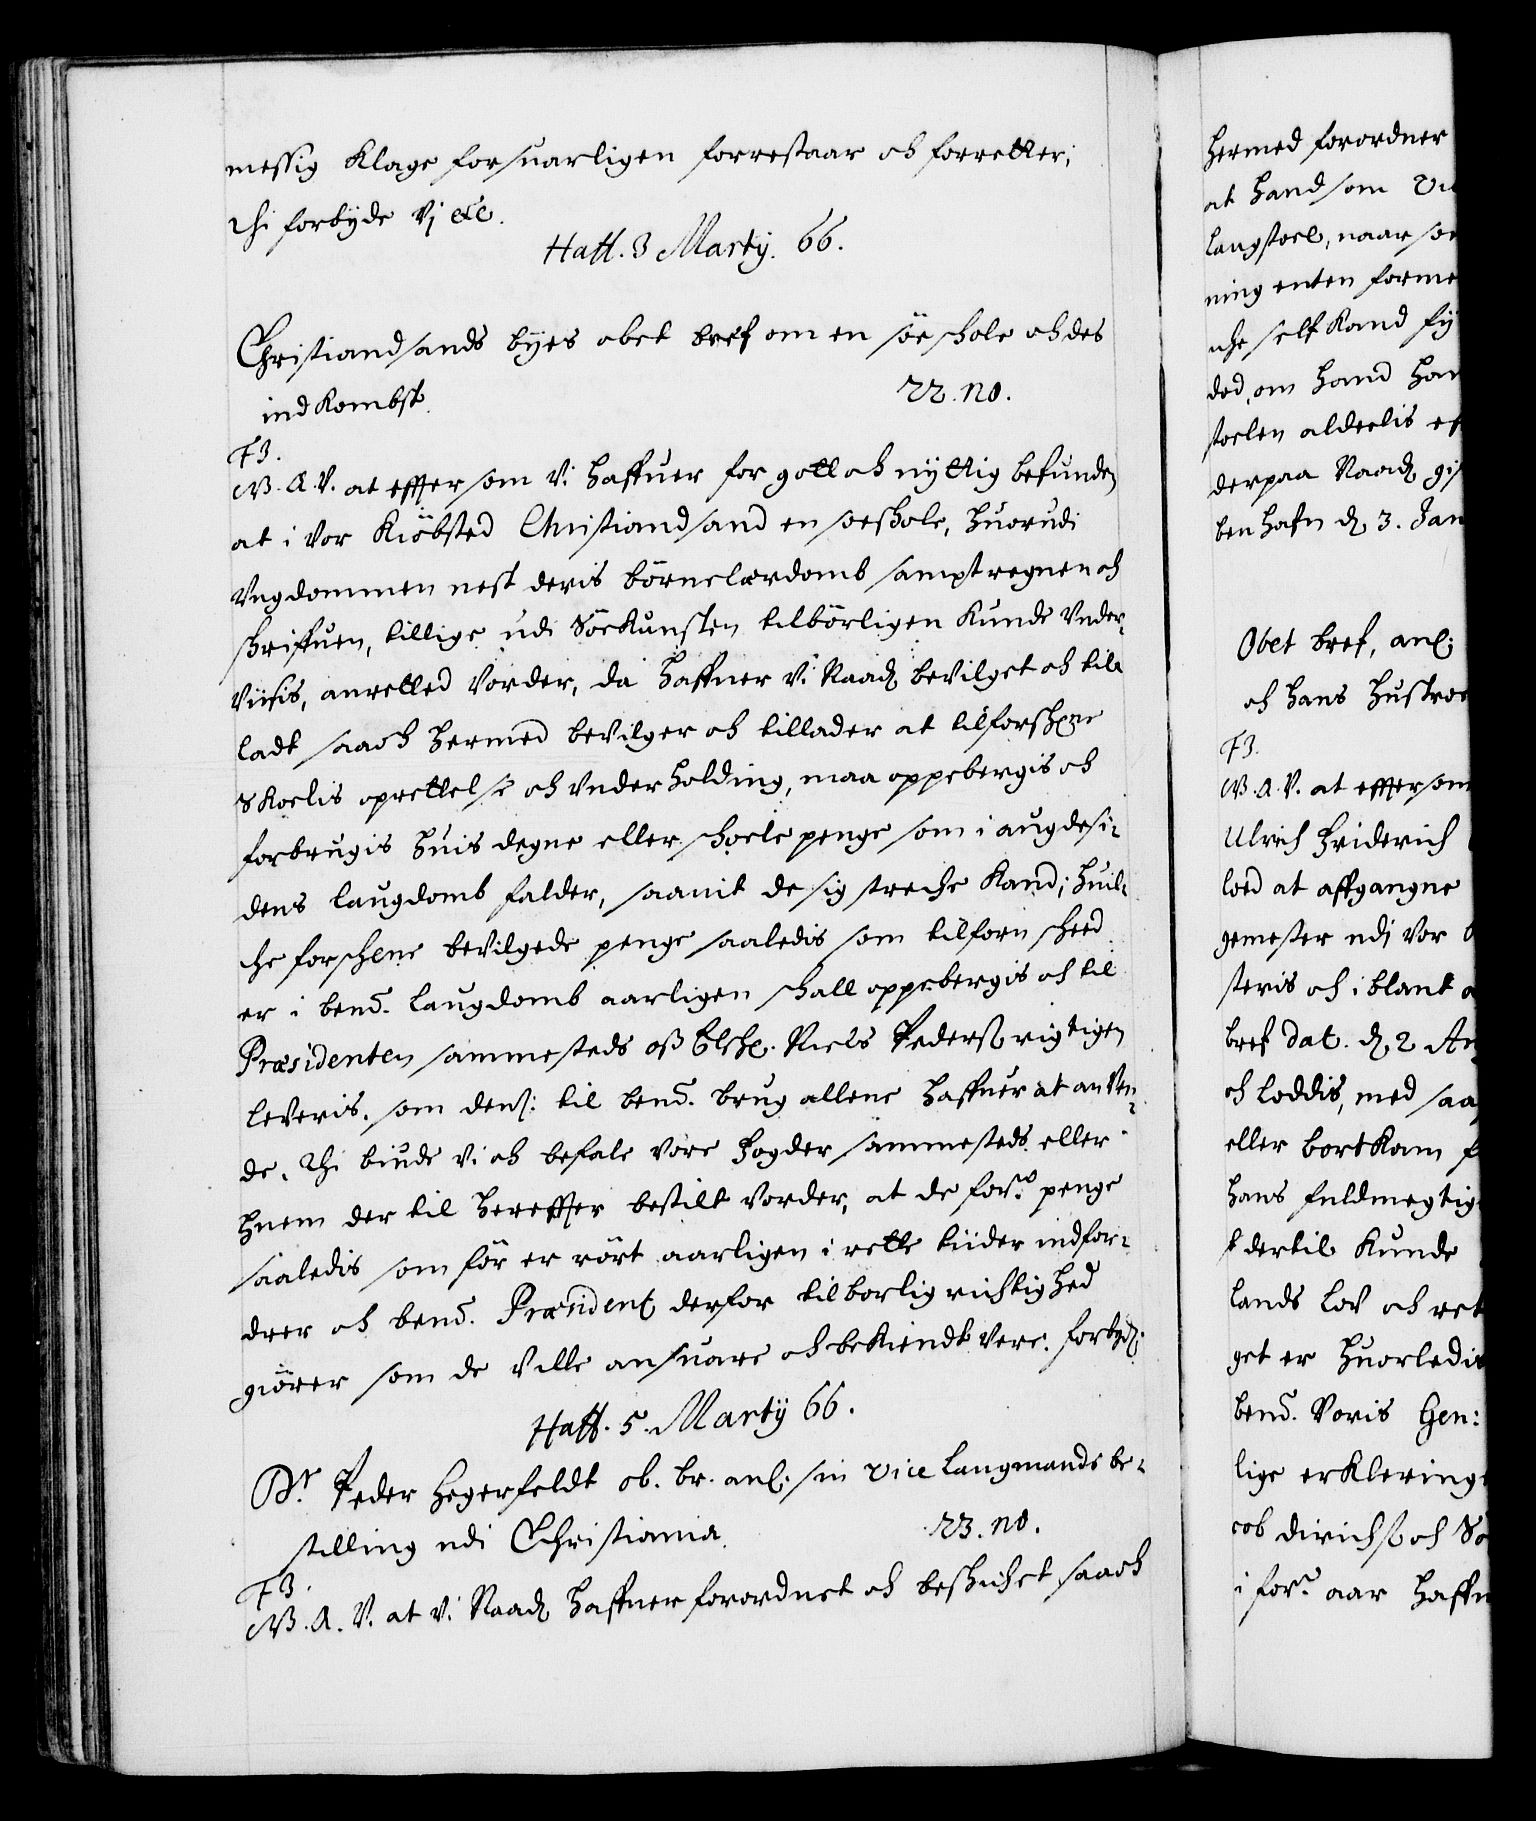 messig Klage forsuarligen forrestaar och forretter;
Thi forbÿde Vj etc.
Haff. 3 Martÿ. 66.
Christiandsands bÿes obet bref om en söe skole och des
indkombst.
22. no.
F3.
W. A. V. at effter som Vi haffuer for gott och nÿttig befunden
at i Vor Kiöbsted Christiandsand en soeskole, huorudi
Ungdommen nest deris börnelærdomb sampt regnen och
skriffuen, tillige udi Söekunsten tilbörligen kunde Under¬
Viisis, anretted Vorder, da haffuer Vi Naadl bevilget och til¬
ladt saa och hermed bevilger och tillader at til forskne
Skoelis oprettelse och Underholding, maa oppebergis och
forbrugis huis degne eller skoele penge som i augdesi¬
dens laugdomb falder, saavit de sig streche kand; huil¬
che forschne bevilgede penge saaledis som tilforn skeed
er i bend. laugdomb aarligen skall oppebergis och til
Præsidenten sammesteds oss Elske. Niels Pederss rigtigen
leveris. som dens: til bend. brug allene haffuer at anven¬
de. Thi biude Vi och befale Vore fogder sammesteds eller
huem der til hereffter bestilt Vorder, at de forne penge
saaledis som för er rört aarligen i rette tiider indfor¬
drer och bend. Præsident derfor tilborlig rigtighed
giörer som de Ville ansuare och bekiendt Vere. forbyd:
Haff. 5. Martÿ 66.
Dr. Peder Hegerfeldt ob. br. anl. sin Vice laugmands be¬
stilling udi Christiania.
23. no.
F3.
W. A. V. at Vi Naadl haffuer forordnet och beskichet saa och
hermed forordner
at hand som
laugstoel, naar
ning enten
selff kand
ded, om hand
stoelen alderlis
derpaa Naadl
benhafn d. 3. Jan
Obet bref, anl:
och hans hustroe
F3.
W. A. V. at effter som
Ulrich Friderich
loed at affgangne
gemester udj Vor
steris och iblant
bref dat. d. 2
och loddis, med
eller bortkom
hans fuldmegtig
dertil kunde
lands lov och
get er huorledis
bend. Voris Gen:
lige erklering
cob dirichss och
i forne aar